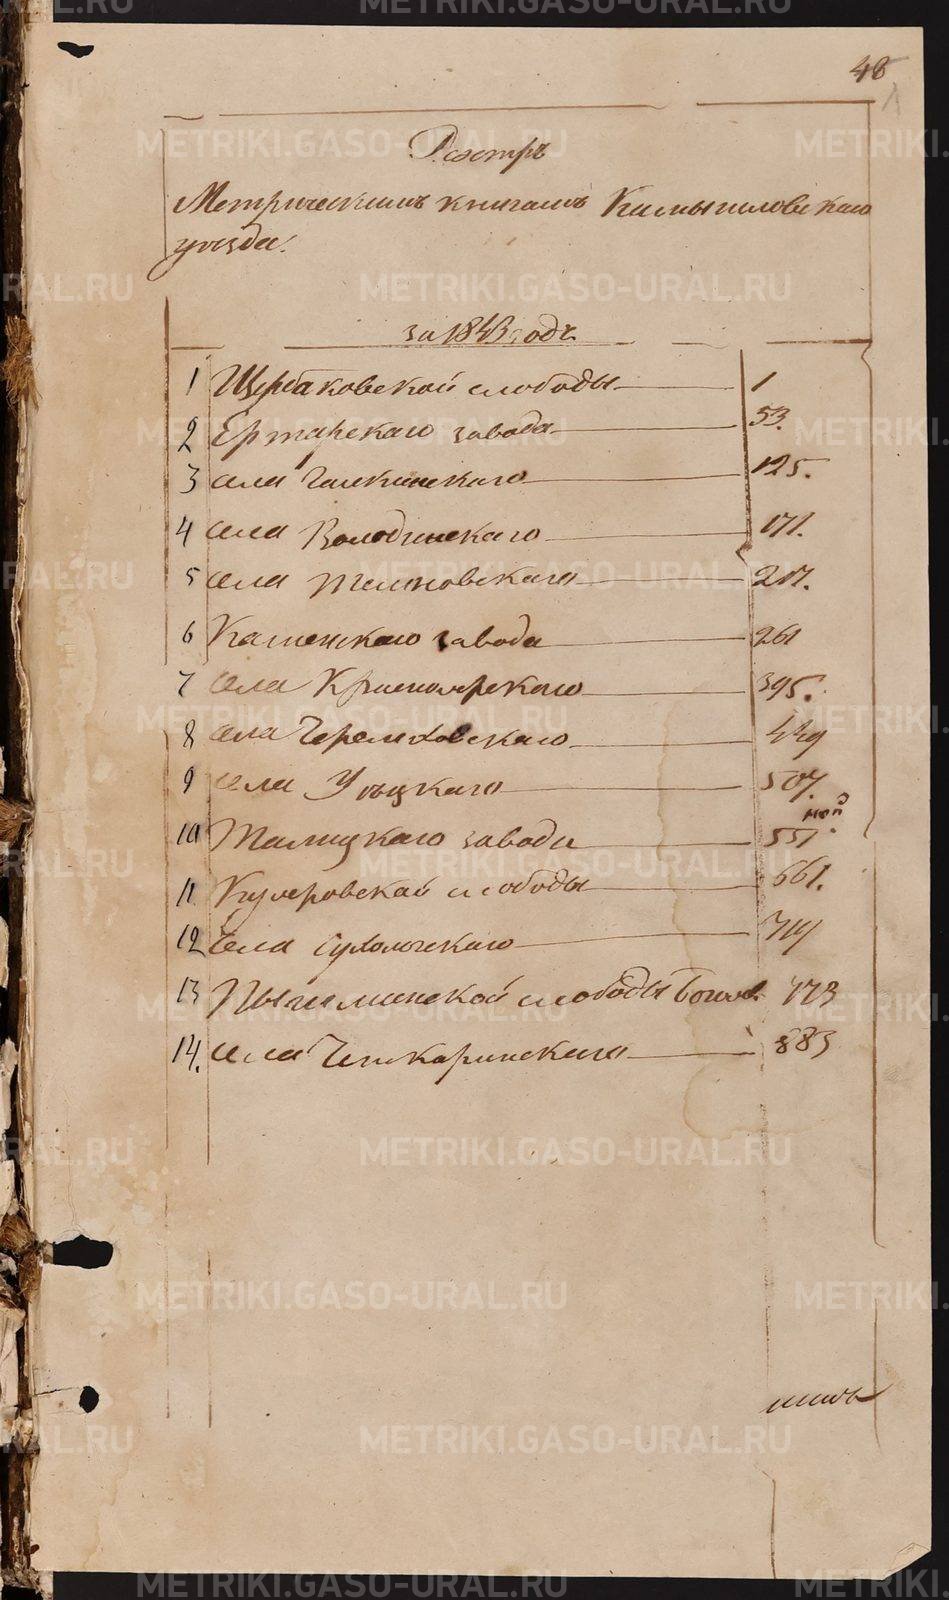 48
1
Реэстръ
Метрическимъ книгамъ Камышловскаго
уѣзда.
за 1843 годъ
1 Щербаковской слободы 1
2 Ертарскаго завода 53.
3 села Галкинскаго 125.
4 села Володинскаго 171.
5 села 217.
6 Каменскаго завода 261
7 села Красноярскаго 395.
8 села Черемховскаго 449
9 села Урѣцкаго 507.
10 Талицкаго завода 551.
11 Кучеровской слободы 661.
12 села 719
13 Пышминской слободы 773
14. села Чемкаринскаго 883
METRIKI.GASO-URAL.RU